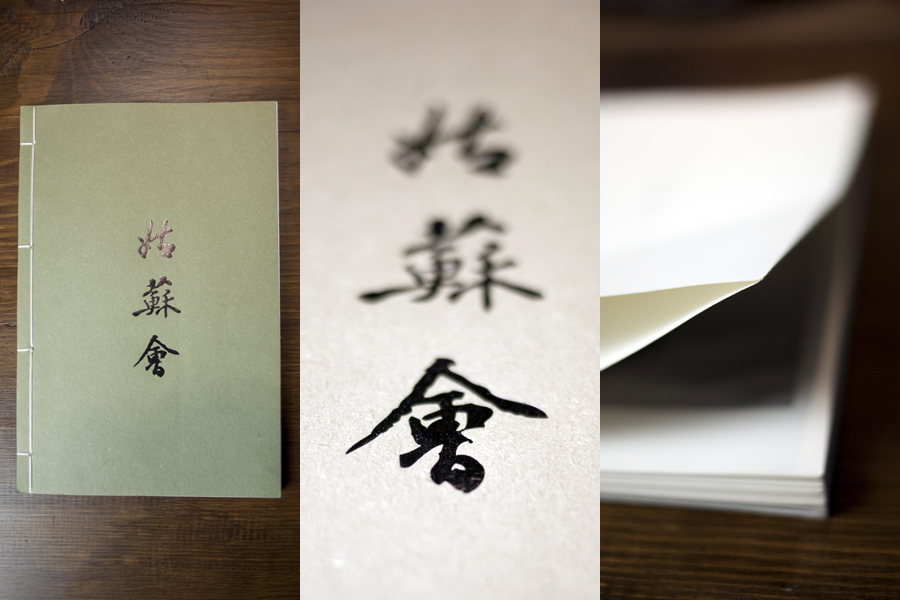 姑
蘇
會
姑
蘇
會